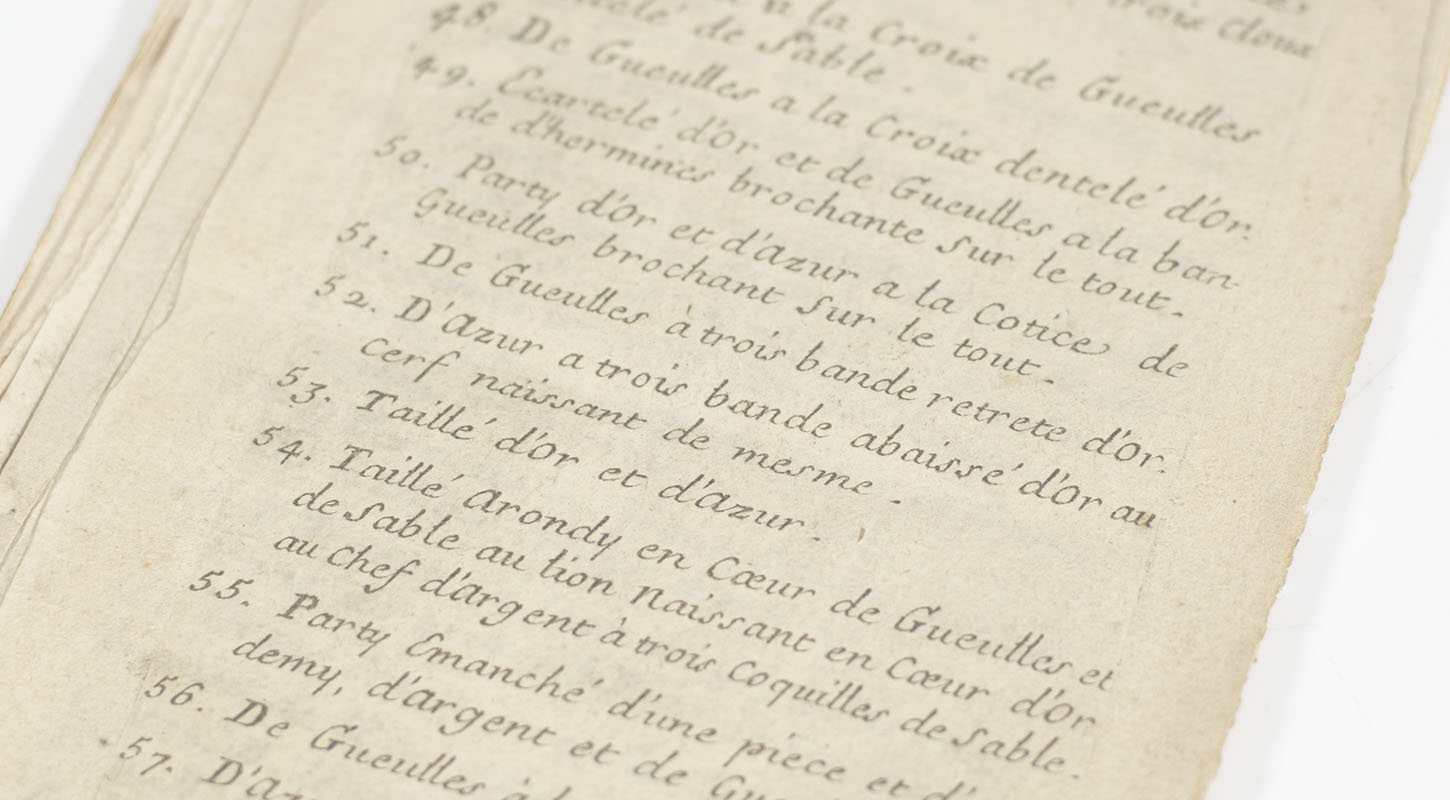 trois cloux
a la Croix de Gueulles
de Sable.
48. De Gueulles a la Croix dentelé d'Or.
49. Ecartelé d'Or et de Gueulles a la ban-
de d'hermines brochante sur le tout.
50. Party d'Or et d'Azur a la Cotice de
Gueulles brochant sur le tout.
51. De Gueulles à trois bande retrete d'Or.
52. D'Azur a trois bande abaissé d'Or au
cerf naissant de mesme.
53. Taillé d'Or et d'Azur.
54. Taillé Arondy en Cœur de Gueulles et
de Sable au lion naissant en Cœur d'Or
au Chef d'Argent à trois Coquilles de Sable.
55. Party Emanché d'une piece et d'
demy, d'argent et de
56. De Gueulles à
57.